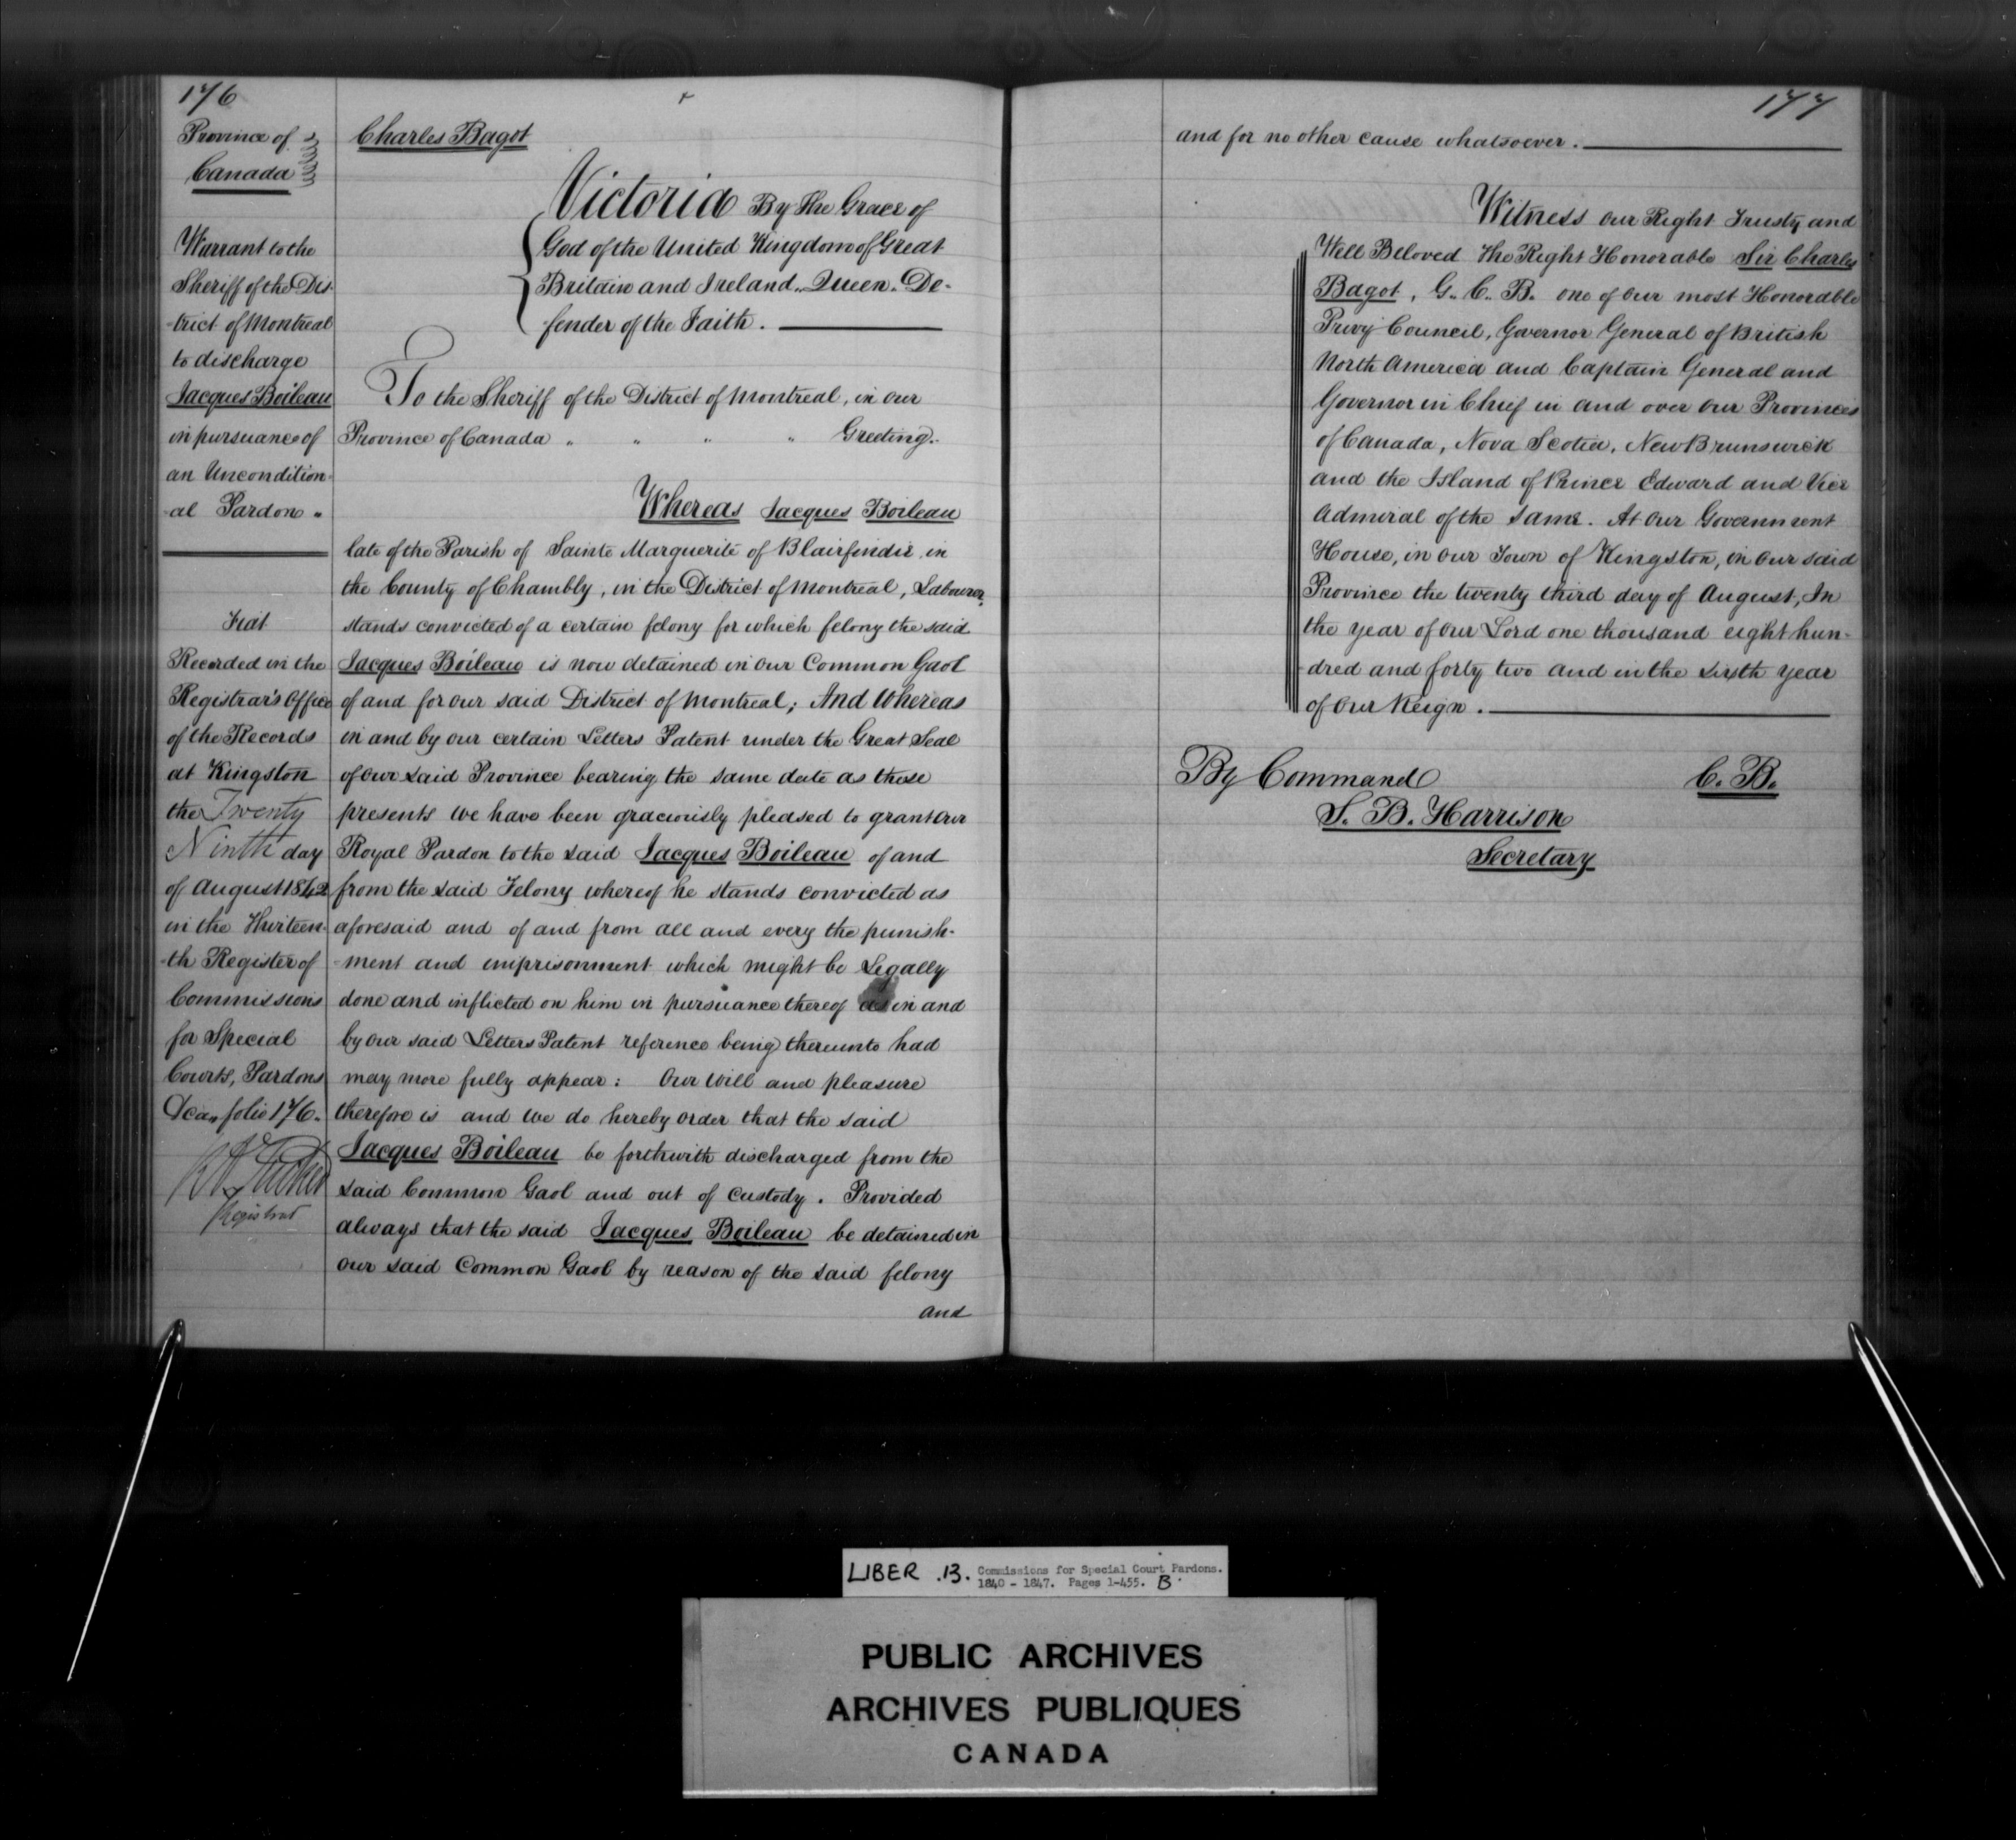 176
Province of
Canada
Warrant to the
Sheriff of the Dis-
-trict of Montreal
to discharge
Jacques Boileau
in pursuance of
an Uncondition-
-al Pardon "
Fiat
Recorded in the
Registrar's Office
of the Records
at Kingston
the Twenty
Ninth day
of August 1842
in the Thirteen-
-th Register of
Commissions
for Special
Courts, Pardons
&ca, folio 176.
Registrar
Charles Bagot
Victoria By The Grace of
God of the United Kingdom of Great
Britain and Ireland, Queen. De-
fender of the Faith.
To the Sheriff of the District of Montreal, in our
Province of Canada " " " " Greeting.
Whereas Jacques Boileau
late of the Parish of Sainte Marguerite of Blairfindie in
the County of Chambly, in the District of Montreal, Labourer,
stands convicted of a certain felony for which felony the said
Jacques Boileau is now detained in our Common Gaol
of and for our said District of Montreal; And Whereas
in and by our certain Letters Patent under the Great Seal
of our said Province bearing the same date as these
presents we have been graciously pleased to grant our
Royal Pardon to the said Jacques Boileau of and
from the said Felony whereof he stands convicted as
aforesaid and of and from all and every the punish-
-ment and imprisonment which might be Legally
done and inflicted on him in pursuance thereof as in and
by our said Letters Patent reference being thereunto had
may more fully appear: Our Will and pleasure
therefore is and we do hereby order that the said
Jacques Boileau be forthwith discharged from the
said Common Gaol and out of custody. Provided
always that the said Jacques Boileau be detained in
our said Common Gaol by reason of the said felony
and
177
and for no other cause whatsoever.
Witness our Right Trusty and
Well Beloved The Right Honorable Sir Charles
Bagot, G. C. B. one of our most Honorable
Privy Council, Governor General of British
North America and Captain General and
Governor in Chief in and over our Provinces
of Canada, Nova Scotia, New Brunswick
and the Island of Prince Edward and Vice
Admiral of the same. At our Government
House, in our Town of Kingston, in our said
Province the twenty third day of August, In
the year of our Lord one thousand eight hun-
-dred and forty two and in the sixth year
of Our Reign.
By Command C. B.
S. B. Harrison
Secretary
LIBER .13. Commissions for Special Court Pardons.
1840 - 1847. Pages 1-455. B.
PUBLIC ARCHIVES
ARCHIVES PUBLIQUES
CANADA